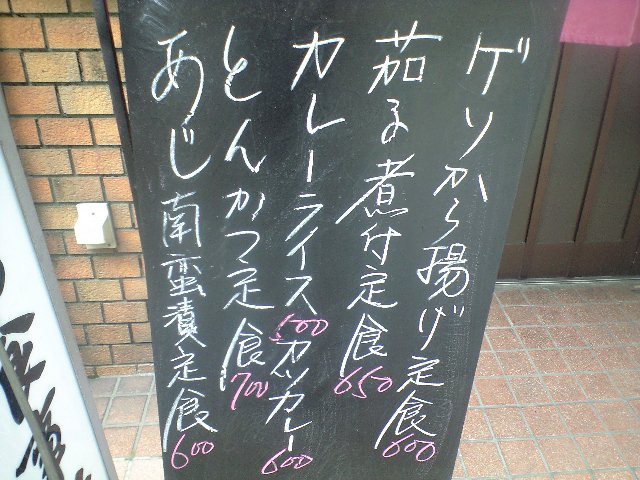 ゲソから揚げ定食600
茄子煮付定食650
カレーライス500カツカレー600
とんかつ定食700
あじ南蛮漬定食600